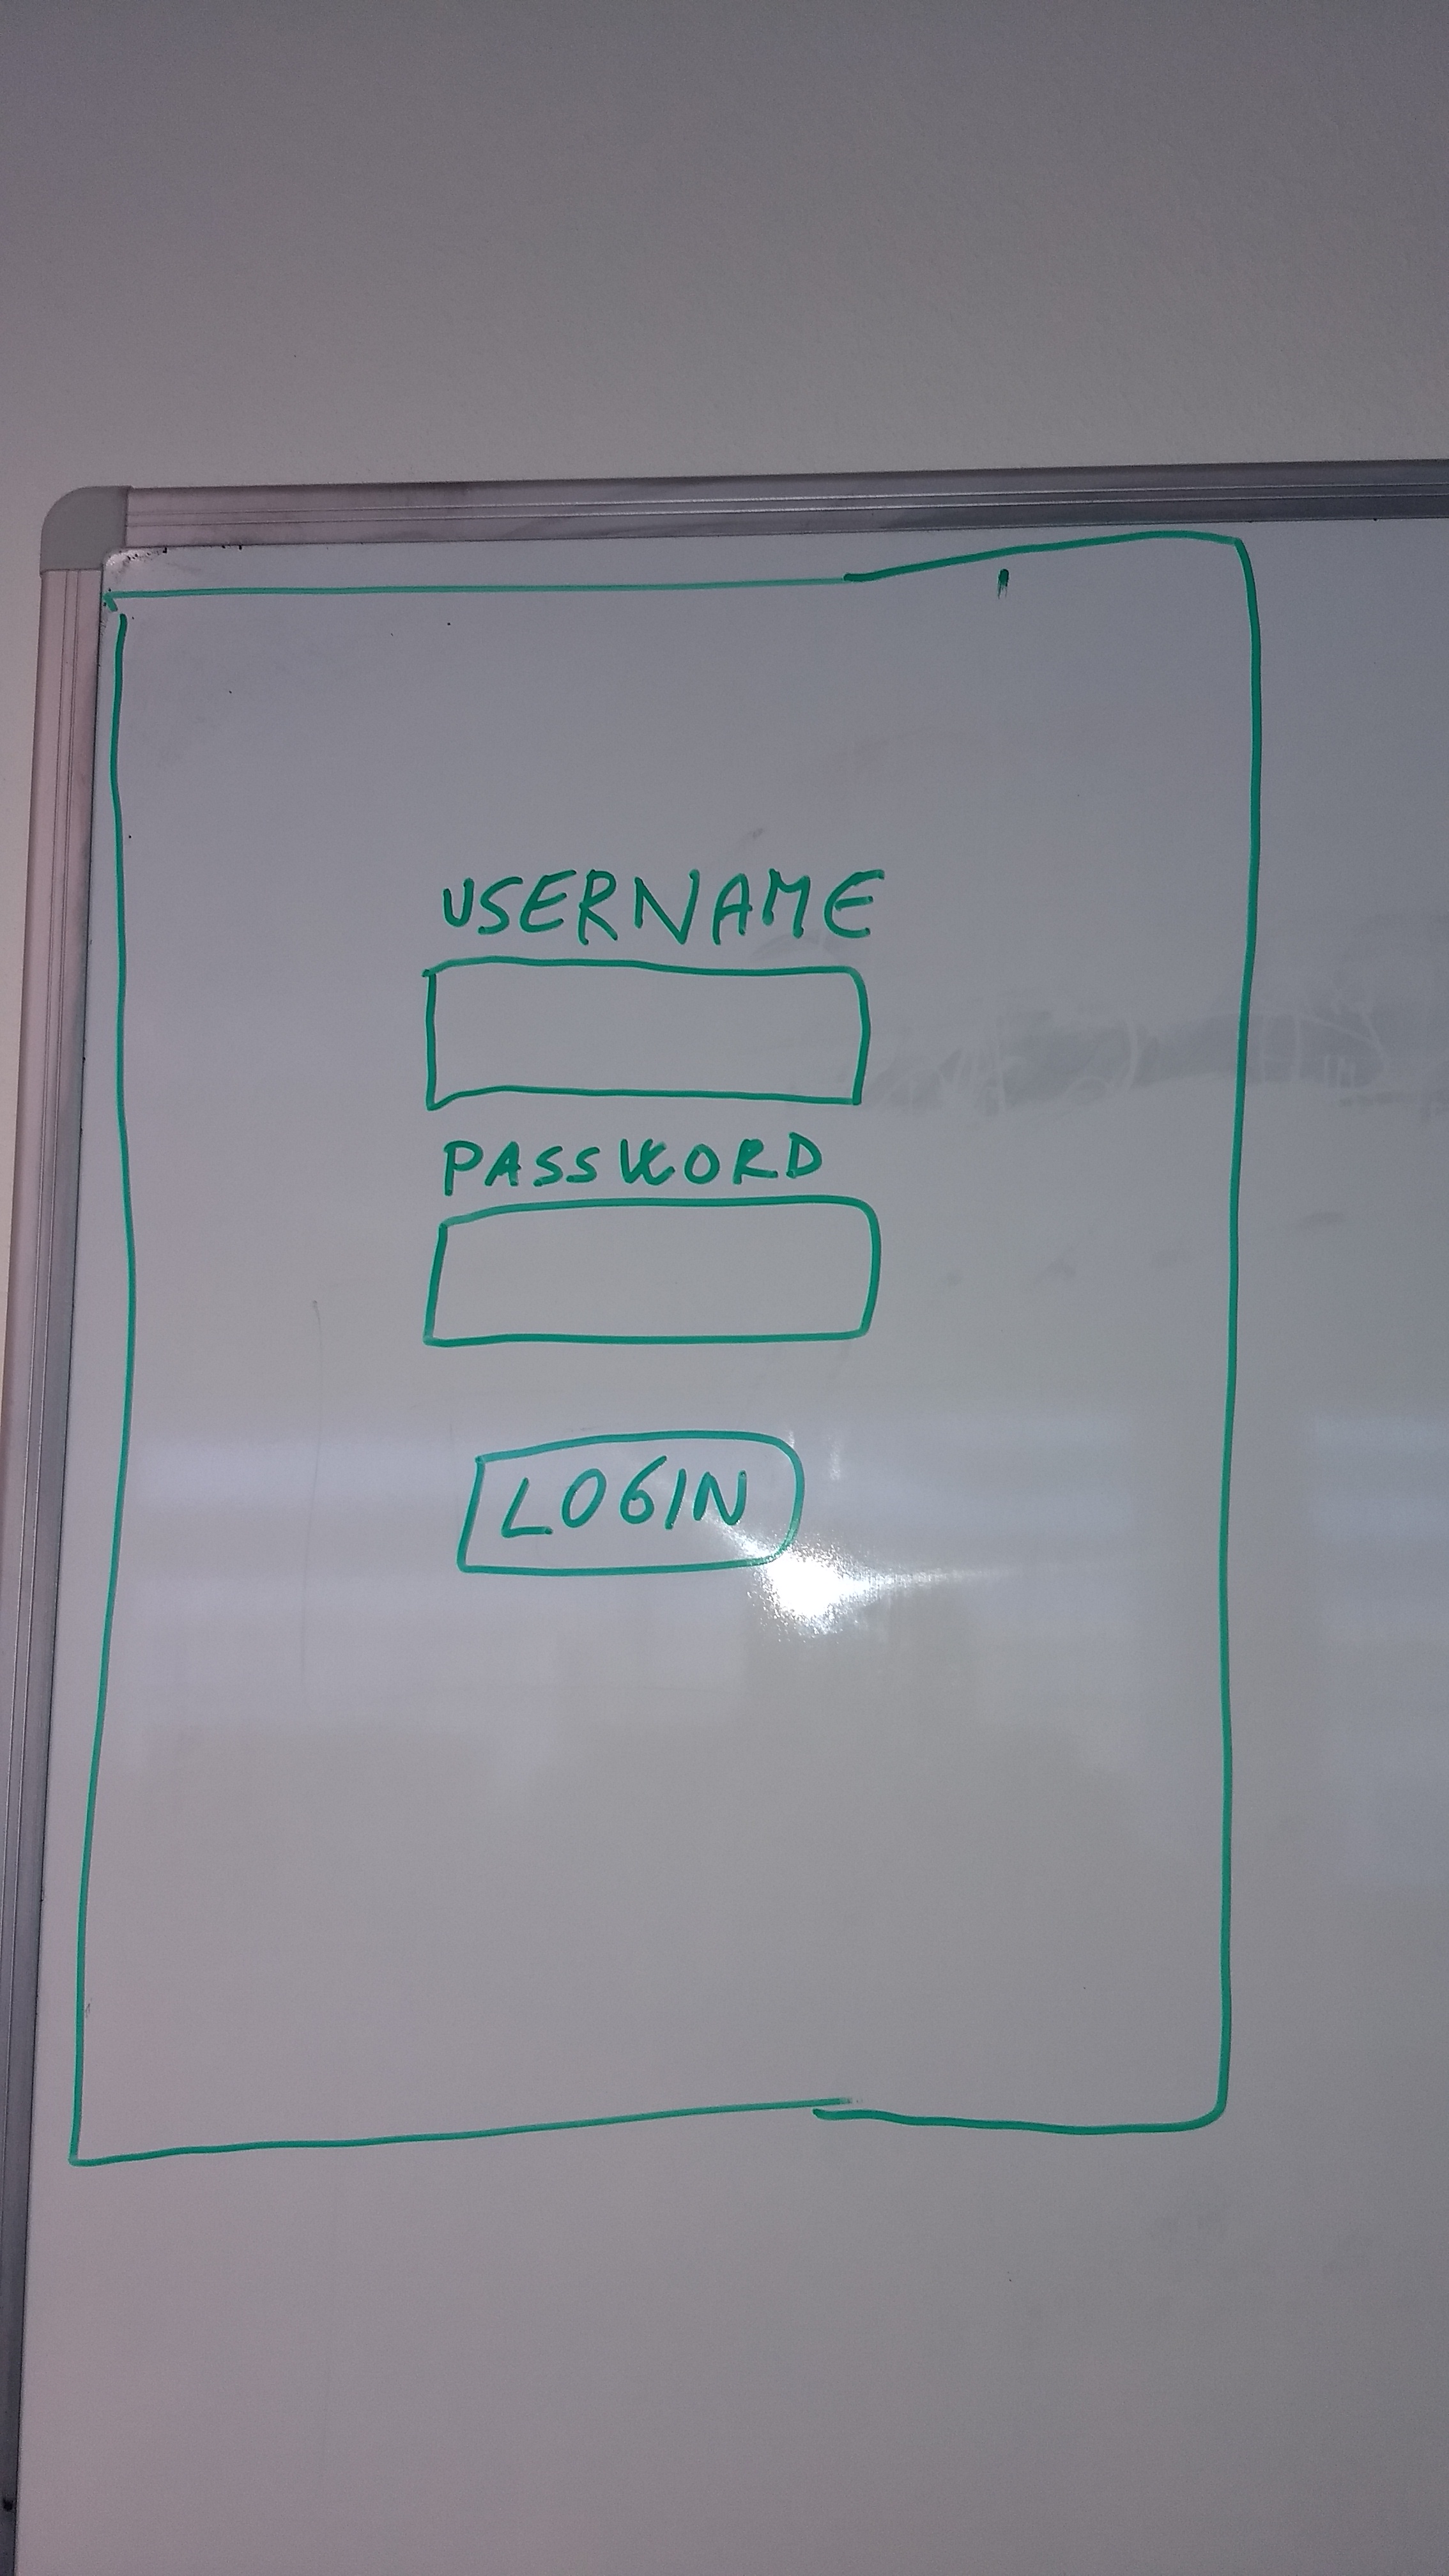 USERNAME
PASSWORD
LOGIN